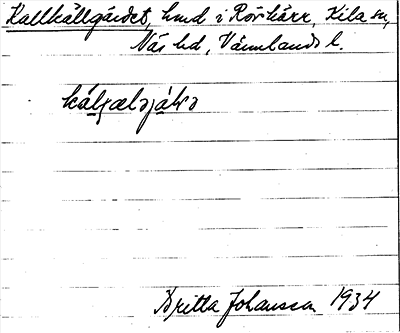 Kallkällgärdet, hmd i Rörkärr, Kila sn,
Näs hd, Värmlands l.
kálɟælɔjáḷɔ
Britta Johansson 1934